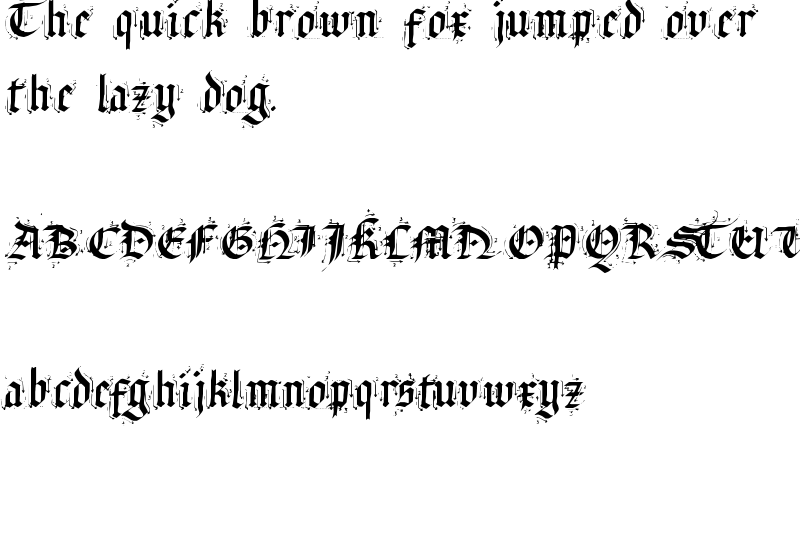 The quick brown fox jumped over
the lazy dog.
ABCDEFGHIJKLMNOPQRSTUV
abcdefghijklmnopqrstuvwxyz